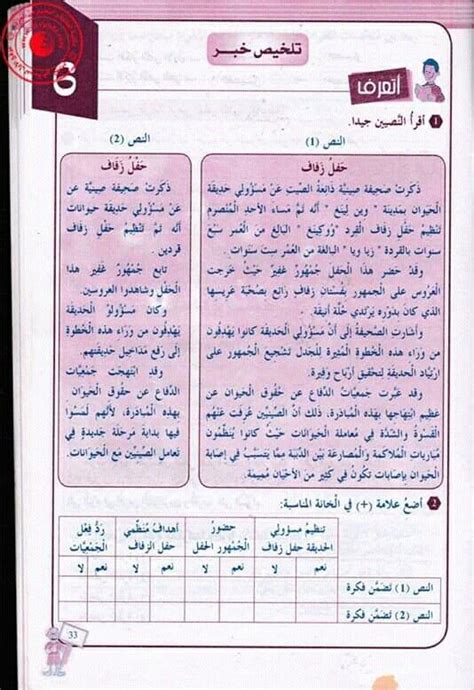 تلخيص خبر
6
أتعرف
1 أقرأ النصين جيدا.
النص (1)
حفل زفاف
ذكرت صحيفة صينية ذائعة الصيت عن مسؤولي حديقة
الحيوان بمدينة " وين لينغ " أنه تم مساء الأحد المنصرم
تنظيم حفل زفاف القرد "ووكينغ" البالغ من العمر سبع
سنوات بالقردة " زيا ويا " البالغة من العمر ست سنوات.
وقد حضر هذا الحفل جمهور غفير حيث خرجت
العروس على الجمهور بفستان زفاف رائع بصحبة عريسها
الذي كان بدوره يرتدي حلة أنيقة.
وأشارت الصحيفة إلى أن مسؤولي الحديقة كانوا يهدفون
من وراء هذه الخطوة المثيرة للجدل تشجيع الجمهور على
ارتياد الحديقة لتحقيق أرباح وفيرة.
وقد عبرت جمعيات الدفاع عن حقوق الحيوان عن
عظيم ابتهاجها بهذه المبادرة، ذلك أن الصينيين عرف عنهم
القسوة والشدة في معاملة الحيوانات حيث كانوا ينظمون
مباريات الملاكمة والمصارعة بين الدببة مما يتسبب في إصابة
الحيوان بإصابات تكون في كثير من الأحيان مميتة.
النص (2)
حفل زفاف
ذكرت صحيفة صينية
عن مسؤولي حديقة حيوانات
أنه تم تنظيم حفل زفاف
قردين.
تابع جمهور غفير هذا
الحفل وشاهدوا العروسين.
وكان مسؤولو الحديقة
يهدفون من وراء هذه الخطوة
إلى رفع مداخيل حديقتهم.
وقد ابتهجت جمعيات
الدفاع عن حقوق الحيوان
بهذه المبادرة، لأنهم لمسوا
فيها بداية مرحلة جديدة في
تعامل الصينيين مع الحيوانات.
2 أضع علامة (+) في الخانة المناسبة:
تنظيم مسؤولي الحديقة حفل زفاف
حضور الجمهور الحفل
أهداف منظمي حفل الزفاف
رد فعل الجمعيات
نعم لا نعم لا نعم لا نعم لا
النص (1) تضمن فكرة
النص (2) تضمن فكرة
33